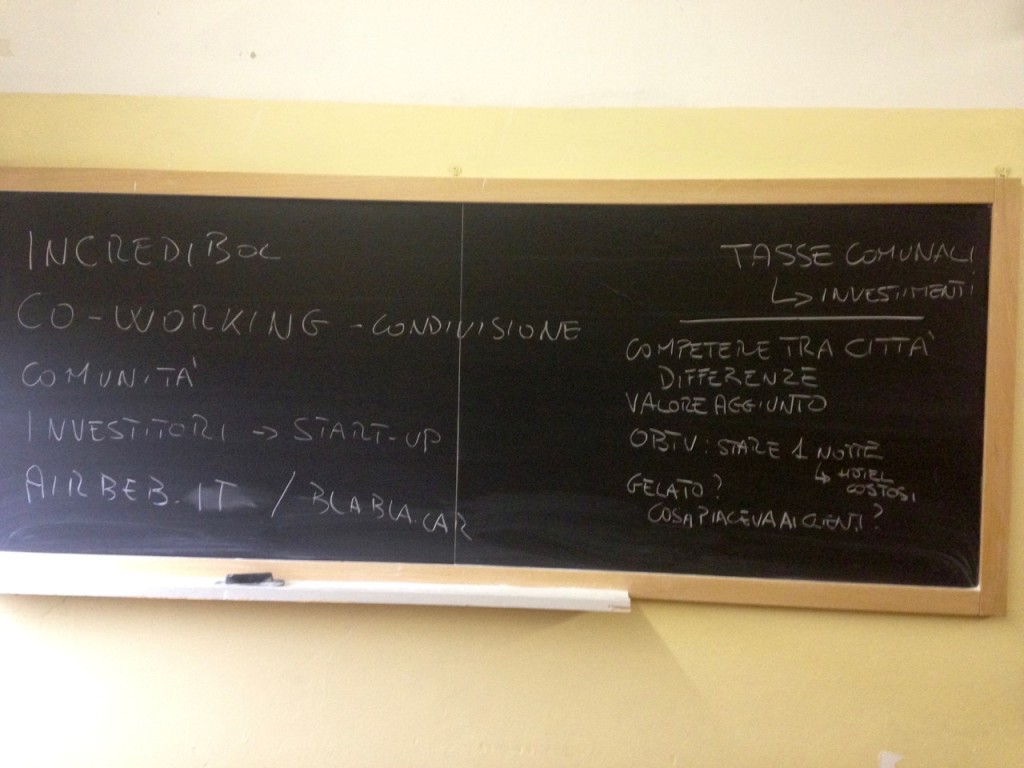 INCREDIBOL
CO-WORKING - CONDIVISIONE
COMUNITÀ
INVESTITORI → START-UP
AIRBEB.IT / BLABLA.CAR
TASSE COMUNALI
↳ INVESTIMENTI
COMPETERE TRA CITTÀ
DIFFERENZE
VALORE AGGIUNTO
OBTV: STARE 1 NOTTE
↳ HOTEL
COSTOSI
GELATO?
COSA PIACEVA AI CLIENTI?